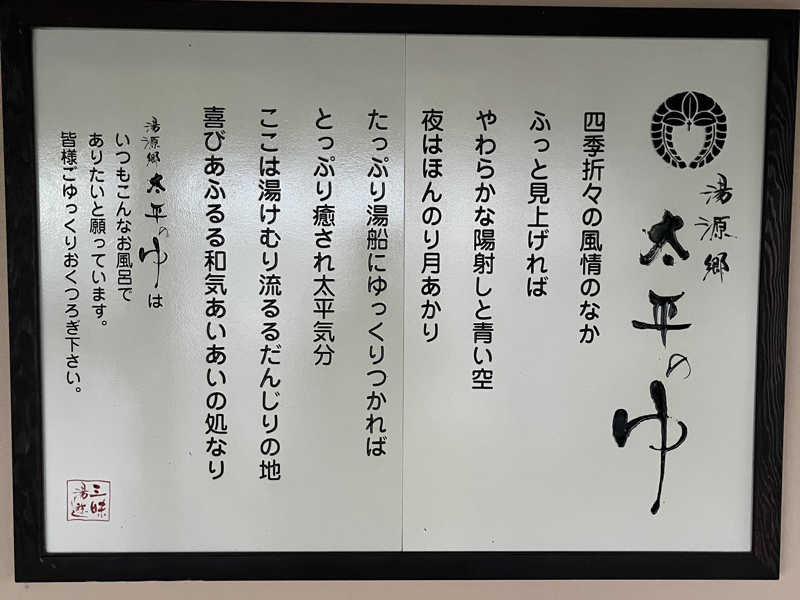 湯源郷
太平のゆ
四季折々の風情のなか
ふっと見上げれば
やわらかな陽射しと青い空
夜はほんのり月あかり
たっぷり湯船にゆっくりつかれば
とっぷり癒され太平気分
ここは湯けむり流るるだんじりの地
喜びあふるる和気あいあいの処なり
湯源郷 太平のゆ は
いつもこんなお風呂で
ありたいと願っています。
皆様ごゆっくりおくつろぎ下さい。
三昧